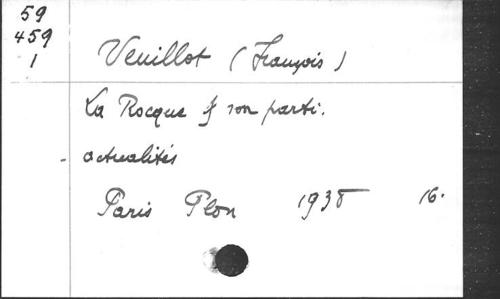 59
459
1
Veuillot (François)
La Rocque & son parti.
actualités
Paris Plon 1938 16.